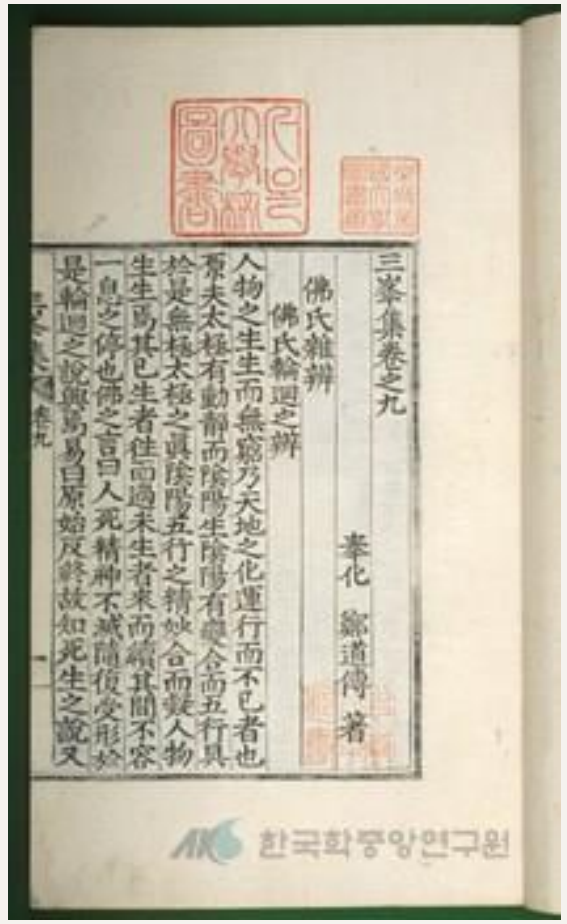 三峯集卷之九
奉化 鄭道傳 著
佛氏雜辨
佛氏輪迴之辨
人物之生生而無窮乃天地之化運行而不已者也
原夫太極有動靜而陰陽生陰陽有變合而五行具
於是無極太極之眞陰陽五行之精妙合而凝人物
生生焉其已生者往而過未生者來而續其間不容
一息之停也佛之言曰人死精神不滅隨復受形於
是輪迴之說興焉易曰原始反終故知死生之說又
三峯集 卷九
一
한국학중앙연구원